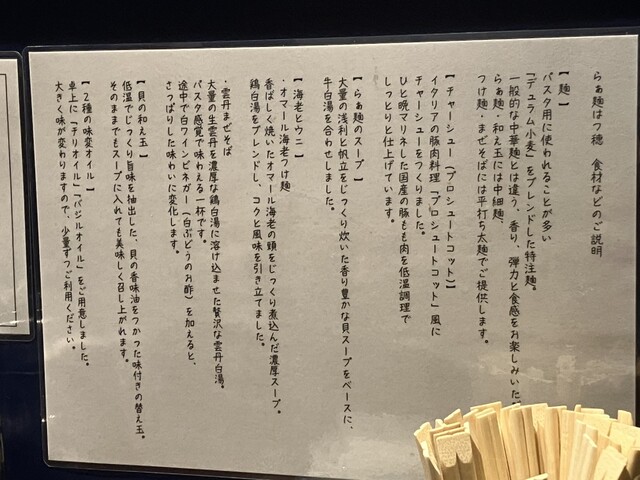 らぁ麺はつ穂　食材などのご説明
【 麺 】
パスタ用に使われることが多い
「デュラム小麦」をブレンドした特注麺。
一般的な中華麺とは違う、香り、弾力と食感をお楽しみいた
らぁ麺・和え玉には中細麺、
つけ麺・まぜそばには平打ち太麺でご提供します。
【 チャーシュー（プロシュートコット）】
イタリアの豚肉料理「プロシュートコット」風に
チャーシューをつくりました。
ひと晩マリネした国産の豚もも肉を低温調理で
しっとりと仕上げています。
【 らぁ麺のスープ 】
大量の浅利と帆立をじっくり炊いた香り豊かな貝スープをベースに、
牛白湯を合わせしました。
【 海老とウニ 】
・オマール海老つけ麺
香ばしく焼いたオマール海老の頭をじっくり煮込んだ濃厚スープ。
鶏白湯をブレンドし、コクと風味を引き立てました。
・雲丹まぜそば
大量の生雲丹を濃厚な鶏白湯に溶け込ませた贅沢な雲丹白湯。
パスタ感覚で味わえる一杯です。
途中で白ワインビネガー（白ぶどうのお酢）を加えると、
さっぱりした味わいに変化します。
【 貝の和え玉 】
低温でじっくり旨味を抽出した、貝の香味油をつかった味付きの替え玉。
そのままでもスープに入れても美味しく召し上がれます。
【 2種の味変オイル 】
卓上に「チリオイル」「バジルオイル」をご用意しました。
大きく味が変わりますので、少量ずつご利用ください。